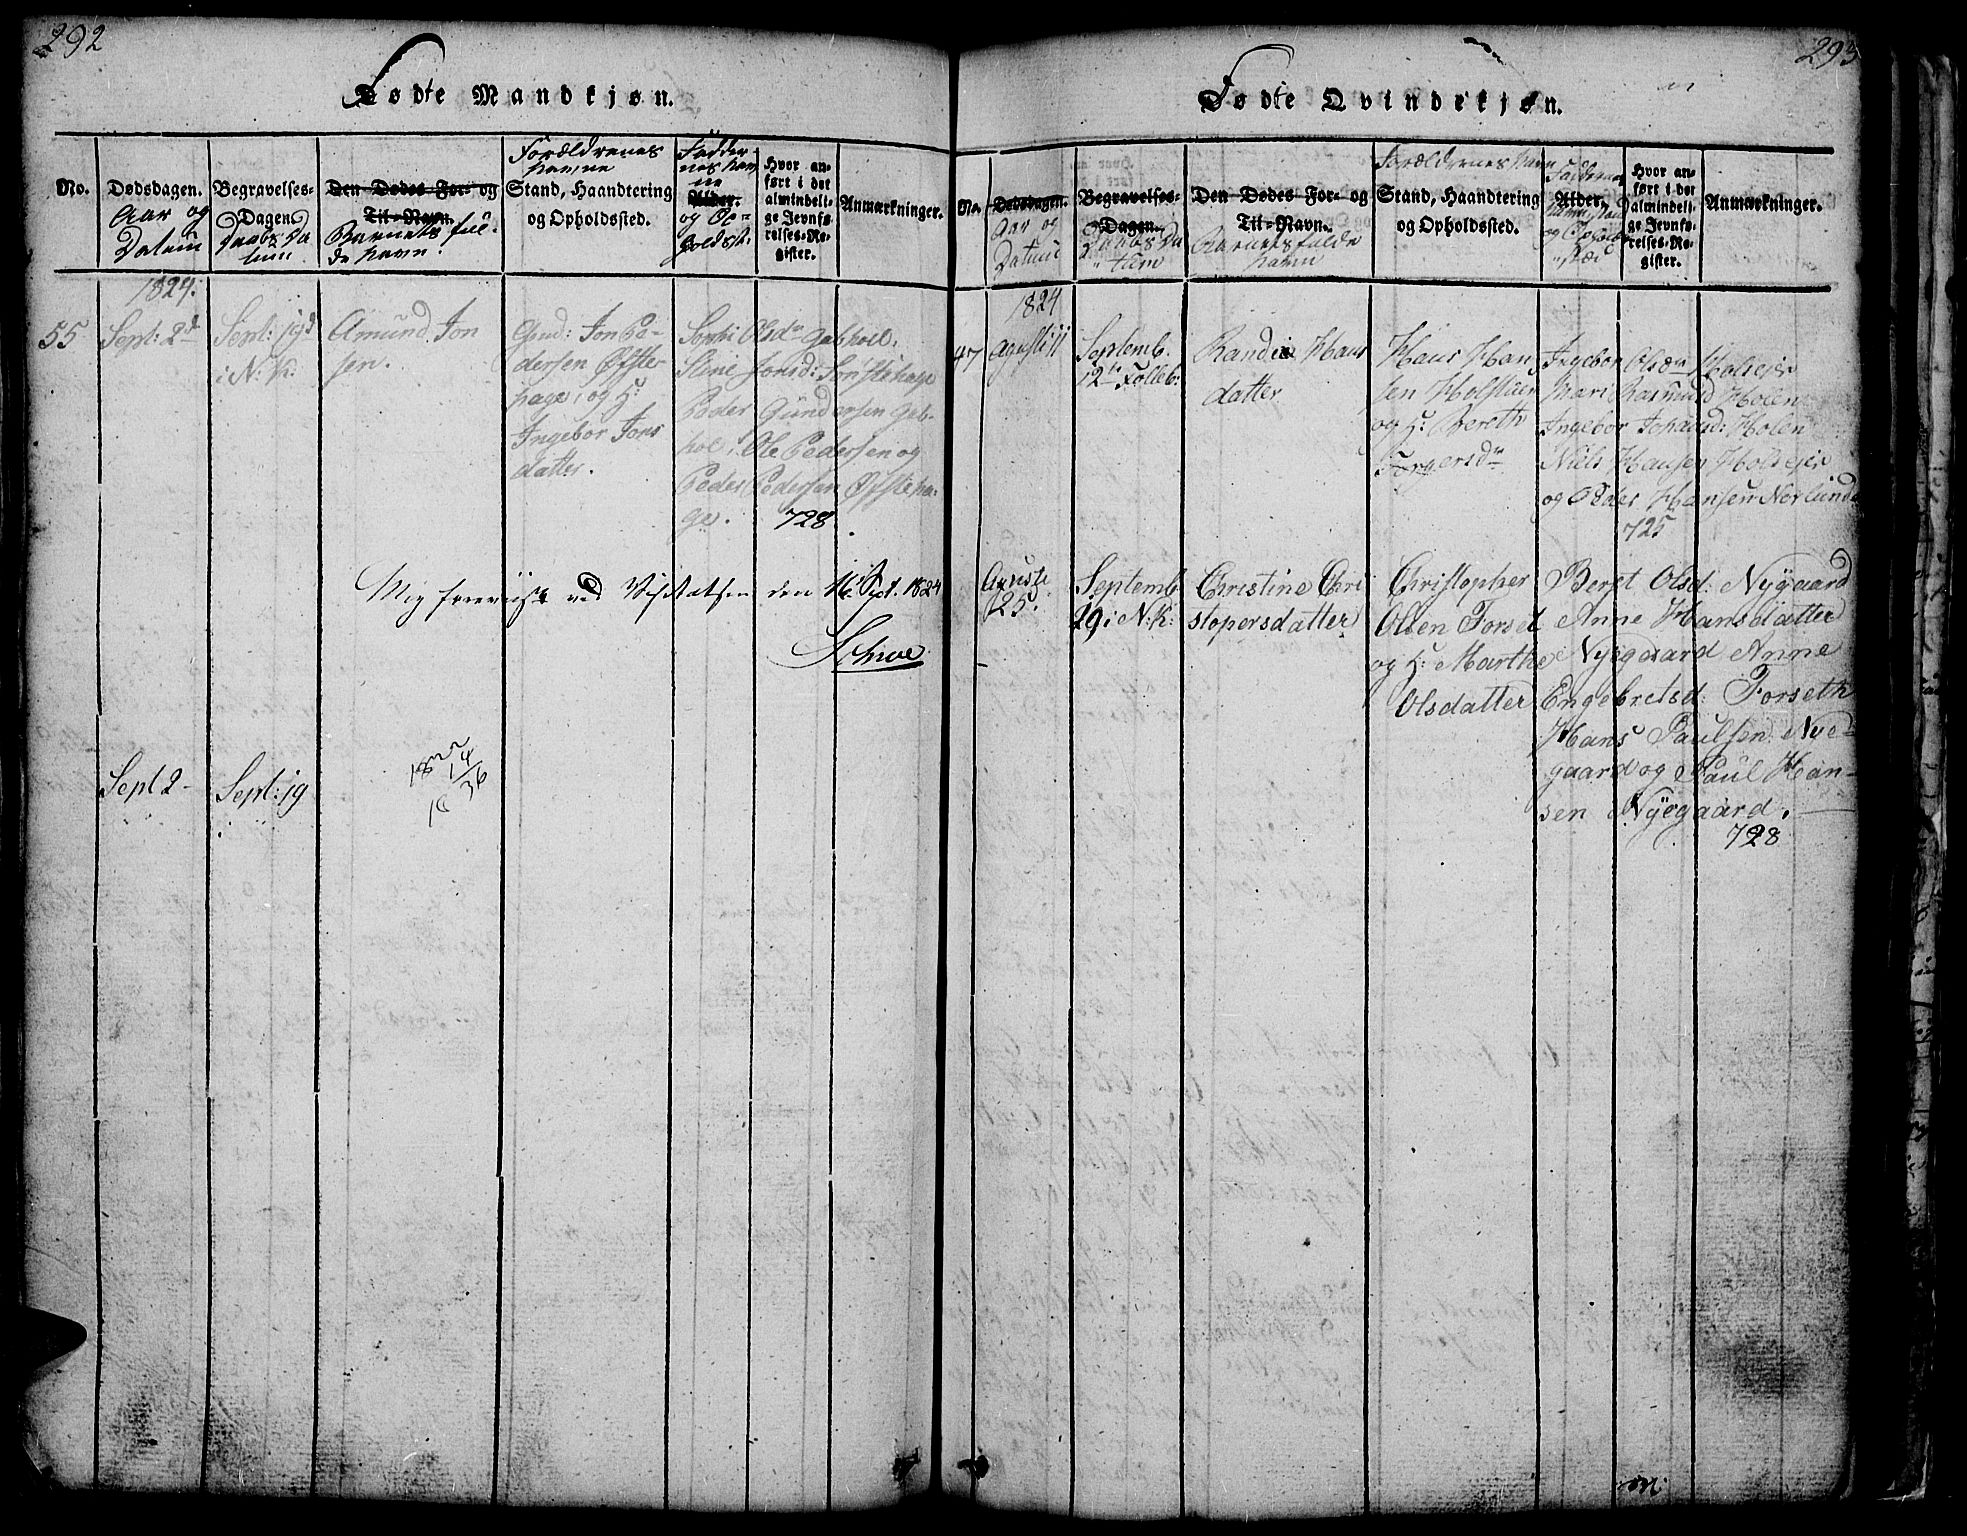 292
Fødte Mandkjøn.
No.
Dødsdagen.
Aar og
Datum
Begravelses-
Dagen
Daabs Da
tum
Den Dødes For- og
Til-Navn.
Barnets ful-
de Navn.
Forældrenes
Navne
Stand, Haandtering
og Opholdssted.
Fadder-
nes Nav
ne
Alder.
og Op-
holdsst.
Hvor an-
ført i det
almindeli-
ge Jevnfø-
relses-Re-
gister.
Anmærkninger.
1824.
55
Sept: 2d
Sept: 19d
i N: K.
Amund Jon
sen.
Gmd: Jon Pe-
dersen Øfste
hage, og H:
Ingebor Jons
datter.
Olsdr Gebhoel.
Stine Jonsd:
Peder Gundersen Geb-
hoel, Ole Pedersen og
Peder Pedersen Øfsteha-
ge. 728.
Mig foreviist ved Visitatsen den 16 Sept. 1824
Sept 2-
Sept: 19
18 14
18 36
293
Fødte Qvindekjøn.
No.
Dødsdagen.
Aar og
Datum
Begravelses-
Dagen.
Daabs Da
tum
Den Dødes For- og
Til-Navn.
Barnets fulde
Navn
Forældrenes Navn
Stand, Haandtering
og Opholdssted.
Alder.
Hvor an-
ført i det
almindeli-
ge Jevnfø-
relses-Re-
gister.
Anmærkninger.
1824
47
Agusti 11
Septemb.
12te Folleb:
Randi Hans
datter
Hans Han
sen Holstuen
og H: Bereth
Torgersdr
Ingebor Olsdr Holseje
Mari Rasmusd Holen
Ingebor Johansd: Holen
Niels Hansen Holseje
og Peder Hansen Norlunde
725
Aguste
25.
Septemb
29 i N: K:
Christine Chri
stopersdatter
Christopher
Olsen Forset
og H: Marthe
Olsdatter
Beret Olsd: Nygaard
Anne Hansdatter
Nyegaard Anne
Engebretsd: Forseth
Hans Paulsen Nye-
gaard og Paul Han-
sen Nyegaard.
728